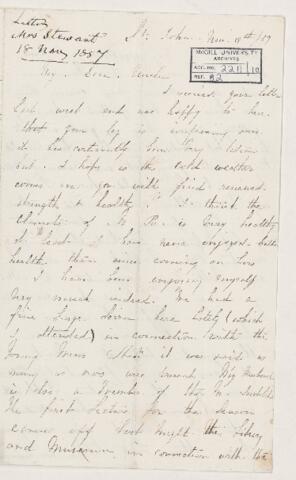 Letter
Mrs Stewart
18 Nov 1887
St. John. Nov. 18th / 87
McGILL UNIVERSITY
ARCHIVES
ACC. NO. 2211/10
REF. 82
My Dear
I received your letter
last week and was happy to hear
that your leg is improving
it has certainly been very
but I hope as the cold weather
comes on you will find renewed
strength & healthy. I think the
climate of N. B. is very healthy
at least I have never enjoyed better
health than since coming
I have been enjoying myself
very much indeed. We had a
fine down here lately (which
I attended) in connection with the
Young Mens it was said as
many as was
is also a member of the
the first lecture for the season
came off last night the Library
and Museum in connection with the